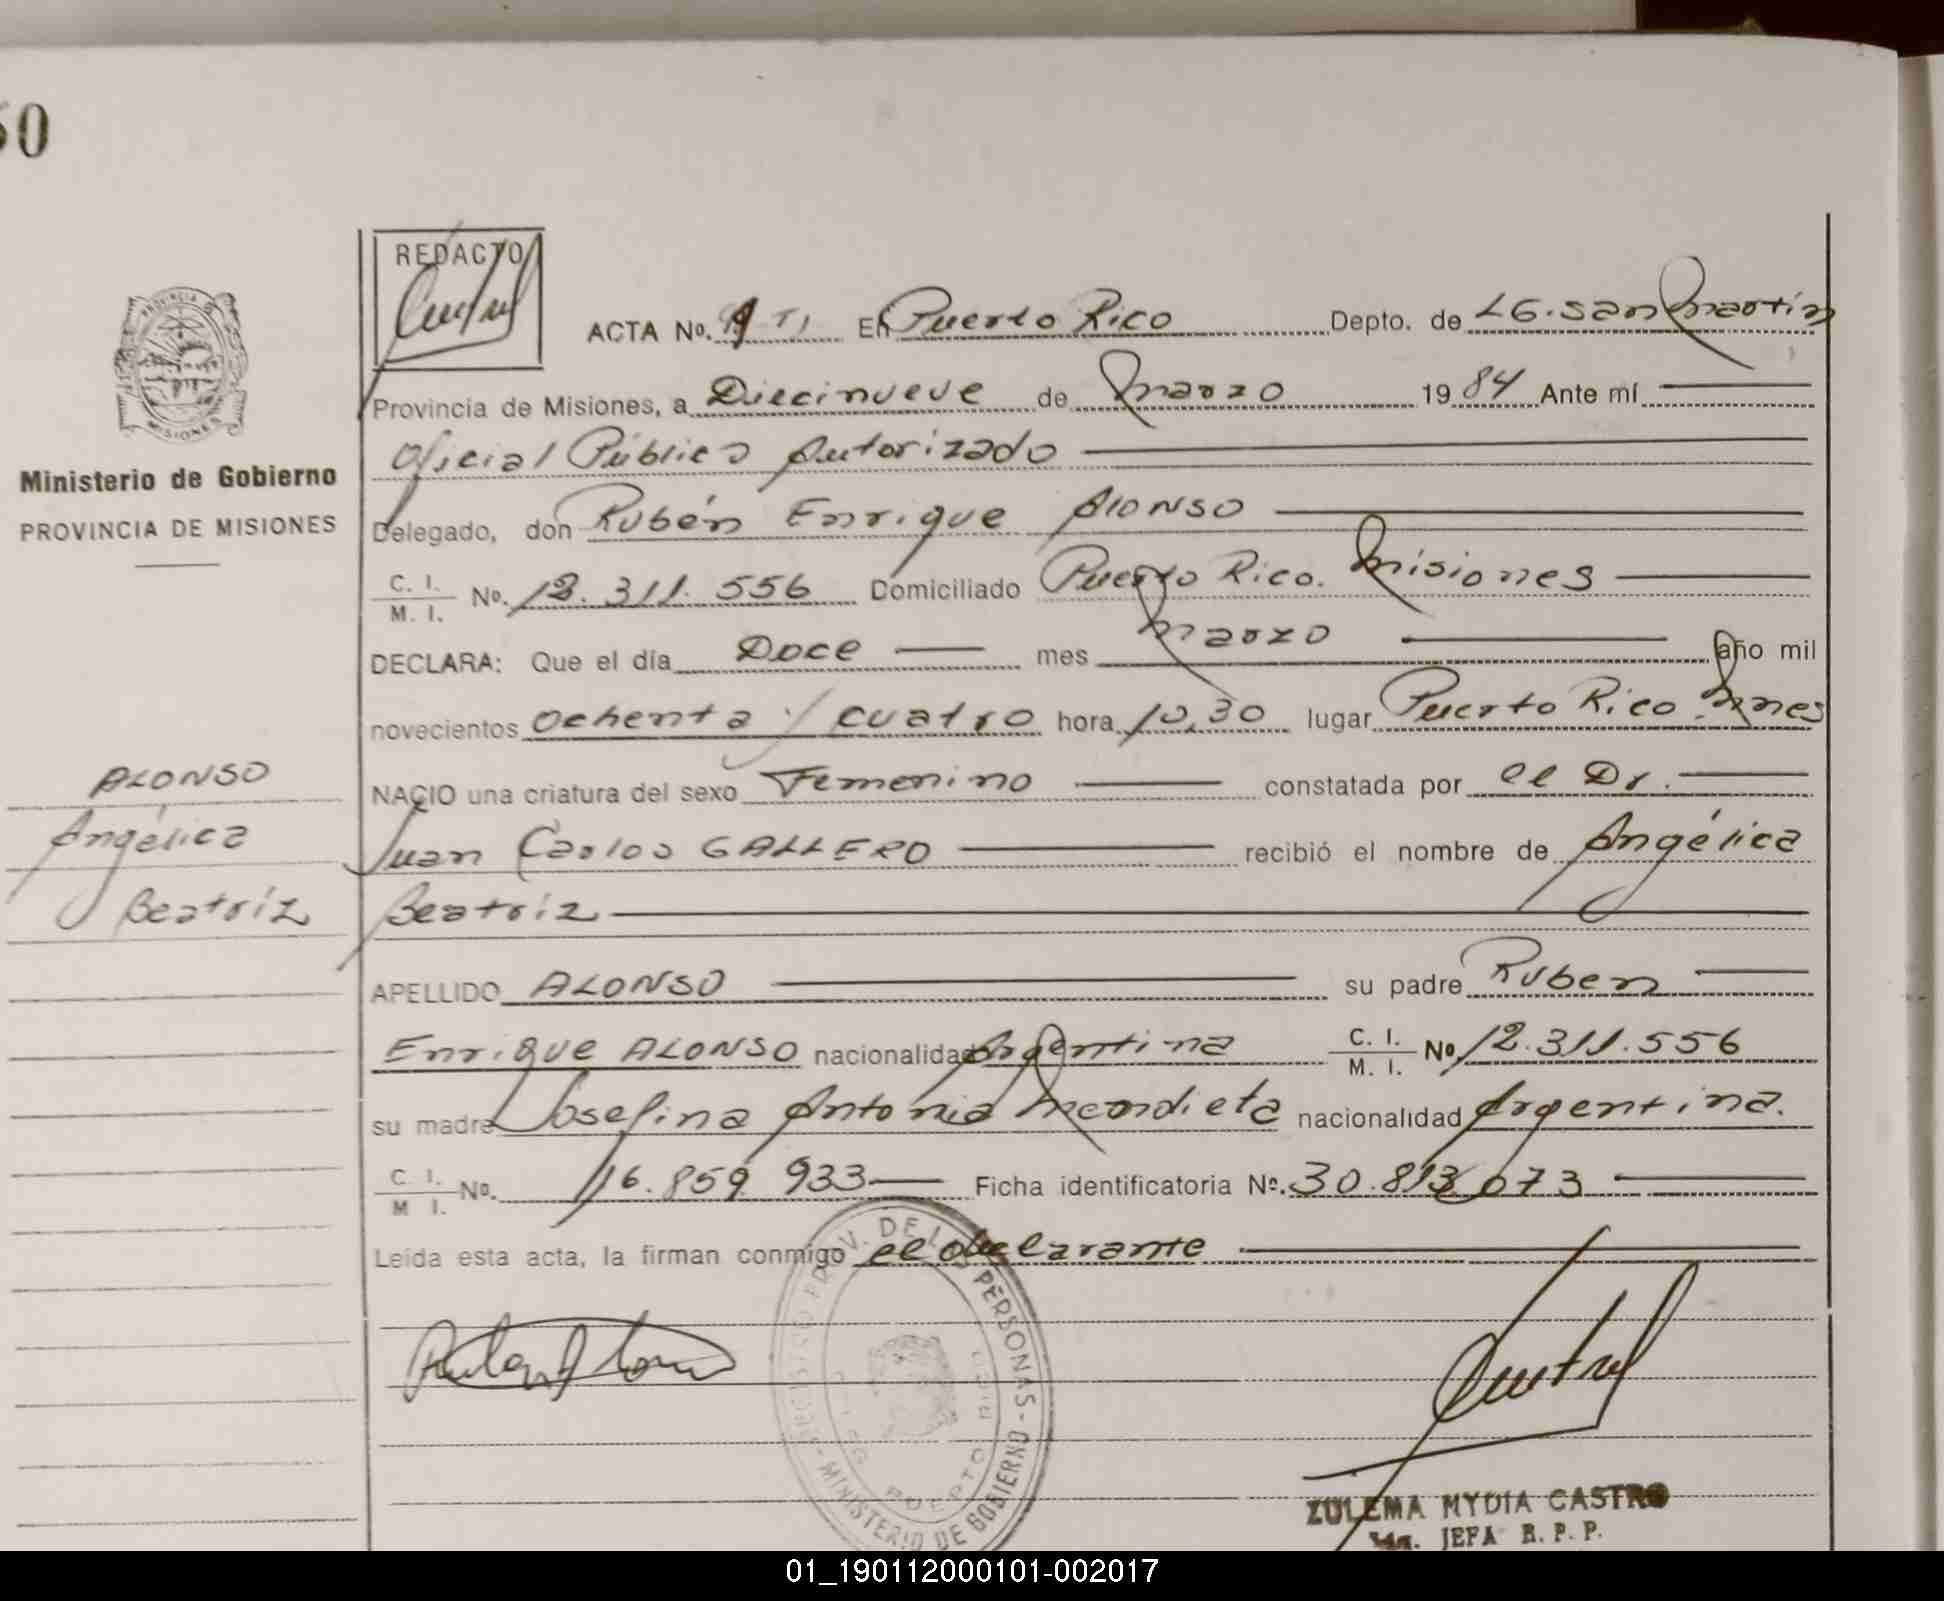 50
REDACTO
ACTA No. En Puerto Rico Depto. de LG. San Martín
Provincia de Misiones, a Diecinueve de Marzo 1984 Ante mí
Oficial Público Autorizado
Ministerio de Gobierno
PROVINCIA DE MISIONES
Delegado, don Rubén Enrique Alonso
C. I. M. I. No. 12.311.556 Domiciliado Puerto Rico. Misiones
DECLARA: Que el día Doce mes Marzo año mil
novecientos ochenta y cuatro hora 10,30 lugar Puerto Rico. Mnes
NACIO una criatura del sexo Femenino constatada por el Dr.
Juan Carlos GALLERO recibió el nombre de Angélica
Beatríz
ALONSO
Angélica
Beatríz
APELLIDO ALONSO su padre Ruben
Enrique ALONSO nacionalidad Argentina C. I. M. I. No 12.311.556
su madre Josefina Antonia Mendieta nacionalidad Argentina.
C. I. M I. No. 16.859.933 Ficha identificatoria Nº. 30.813.073
Leída esta acta, la firman conmigo el declarante
PROV. DE LAS PERSONAS - MINISTERIO DE GOBIERNO
PUERTO RICO
ZULEMA MYDIA CASTRO
JEFA R. P. P.
01_190112000101-002017